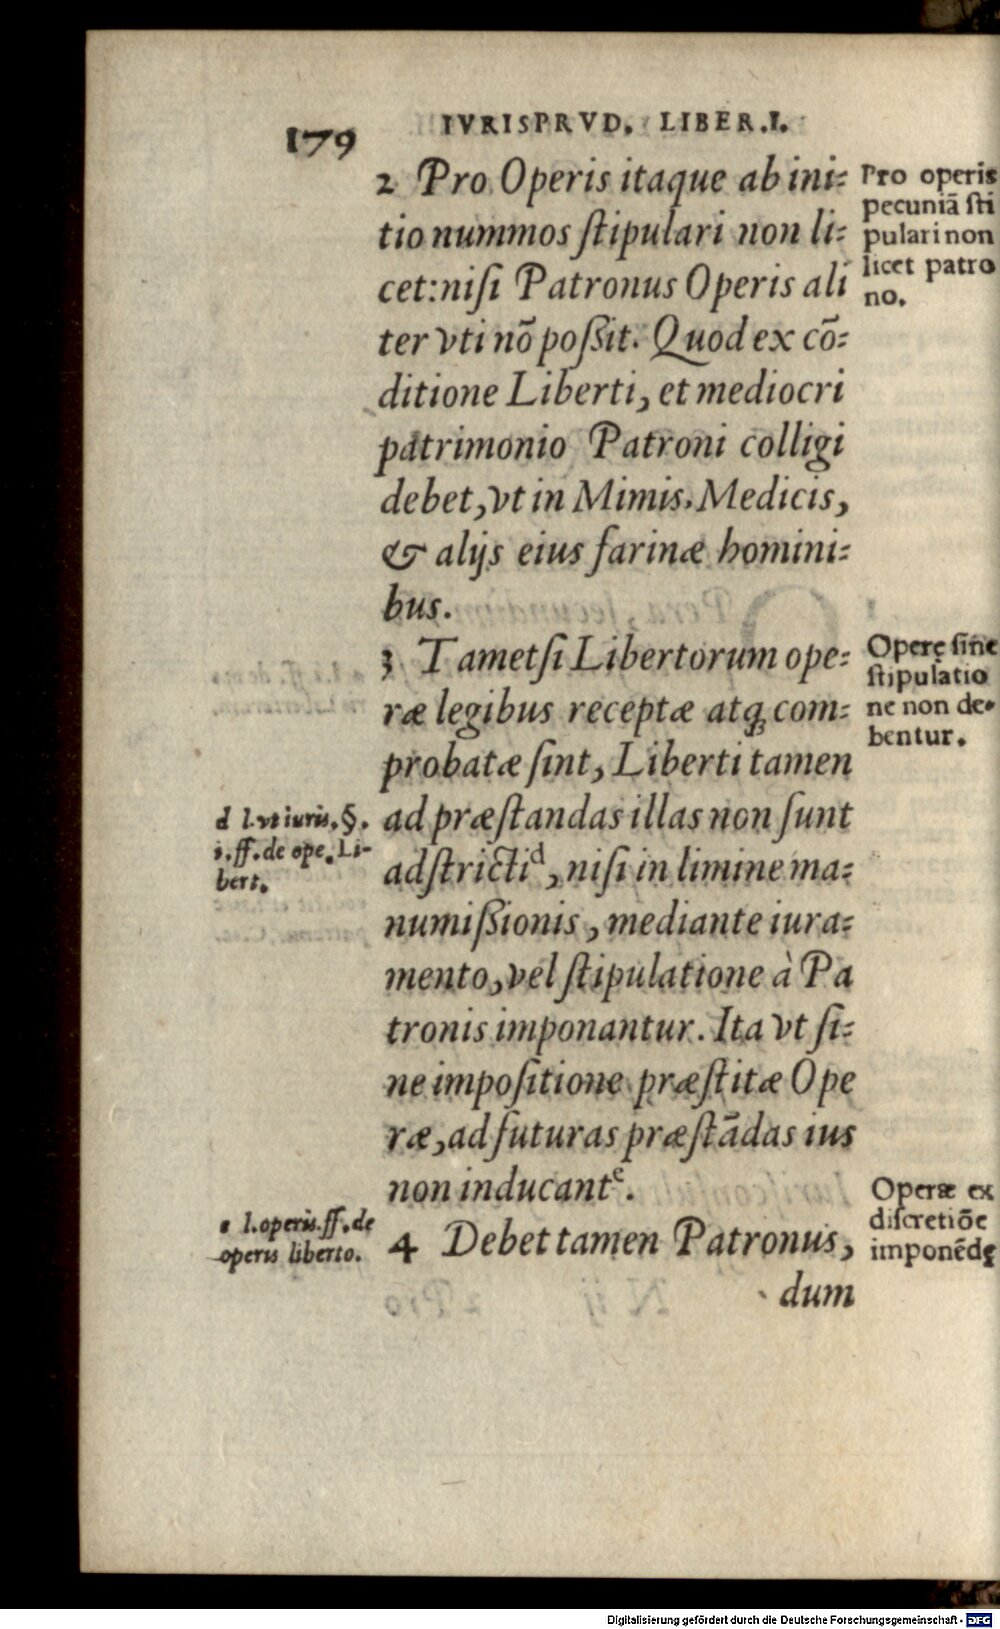 179
IVRISPRVD. LIBER.I.
2 Pro Operis itaque ab ini⸗
tio nummos ſtipulari non li⸗
cet: niſi Patronus Operis ali
ter vti nõ poßit. Quod ex cõ⸗
ditione Liberti, et mediocri
patrimonio Patroni colligi
debet, vt in Mimis, Medicis,
& alijs eius farinæ homini⸗
bus.
Pro operis
pecuniã ſti
pulari non
licet patro
no.
3 Tametſi Libertorum ope⸗
ræ legibus receptæ atq; com⸗
probatæ ſint, Liberti tamen
ad præſtandas illas non ſunt
adſtricti d, niſi in limine ma⸗
numißionis, mediante iura⸗
mento, vel ſtipulatione à Pa
tronis imponantur. Ita vt ſi⸗
ne impoſitione præſtitæ Ope
ræ, ad futuras præſtãdas ius
non inducant e.
Operę ſine
ſtipulatio
ne non de⸗
bentur.
d l. vt iuris. §.
1. ff. de ope. Li-
bert.
4 Debet tamen Patronus,
dum
Operæ ex
diſcretiõe
imponẽdę
e l. operis. ff. de
operis liberto.
Digitalisierung gefördert durch die Deutsche Forschungsgemeinschaft - DFG